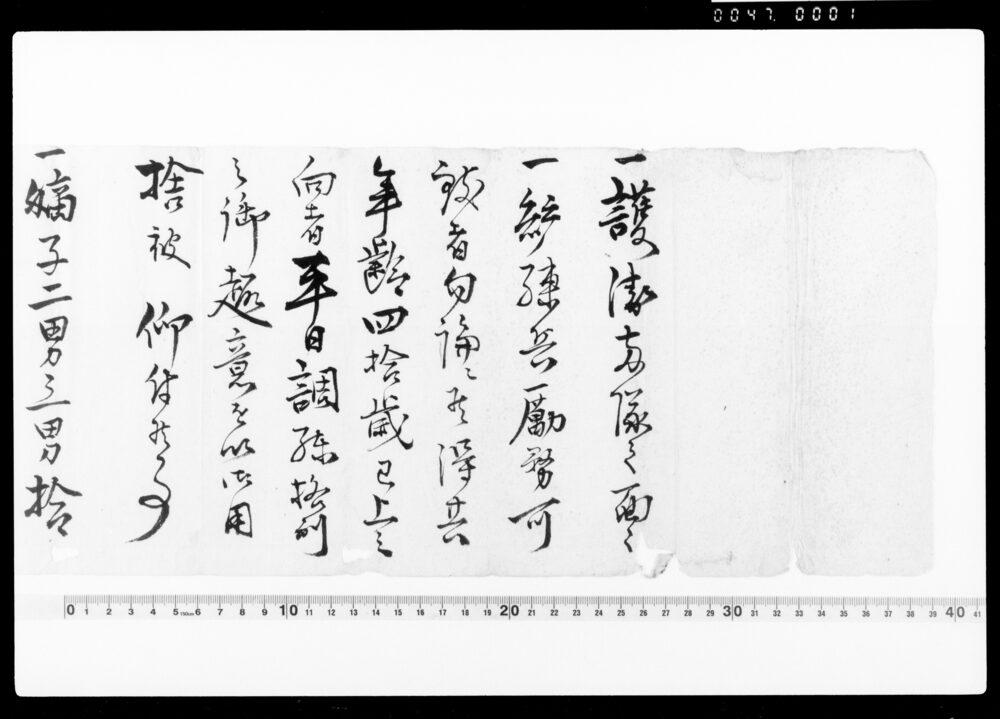 0047. 0001
一護衛両隊之面々
一纱練兵励勢可
致者勿論ニ候得共
年齢四拾歳已上之
向者平日調練格別
之御趣意を以御用
捨被 仰付候事
一嫡子二男三男拾
0 1 2 3 4 5 150cm 6 7 8 9 10 11 12 13 14 15 16 17 18 19 20 21 22 23 24 25 26 27 28 29 30 31 32 33 34 35 36 37 38 39 40 41